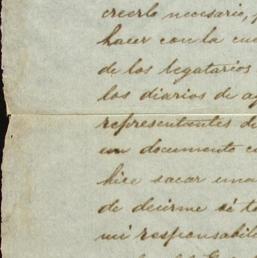 creerlo necesario,
hacer con la
de los legatarios
los diarios de
representantes de
un documento
hice sacar una
de decirme si
mi responsabil